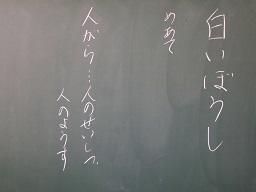 白いぼうし
めあて
人がら…人のせいしつ
人のようす